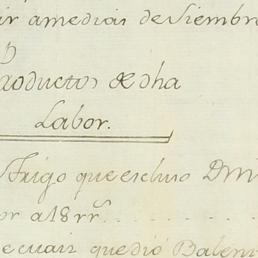 ir amedias de siembro
Productos de dha
Labor.
Trigo que escluso Dm
or a 18 rrs.
ecuair que dió Balen